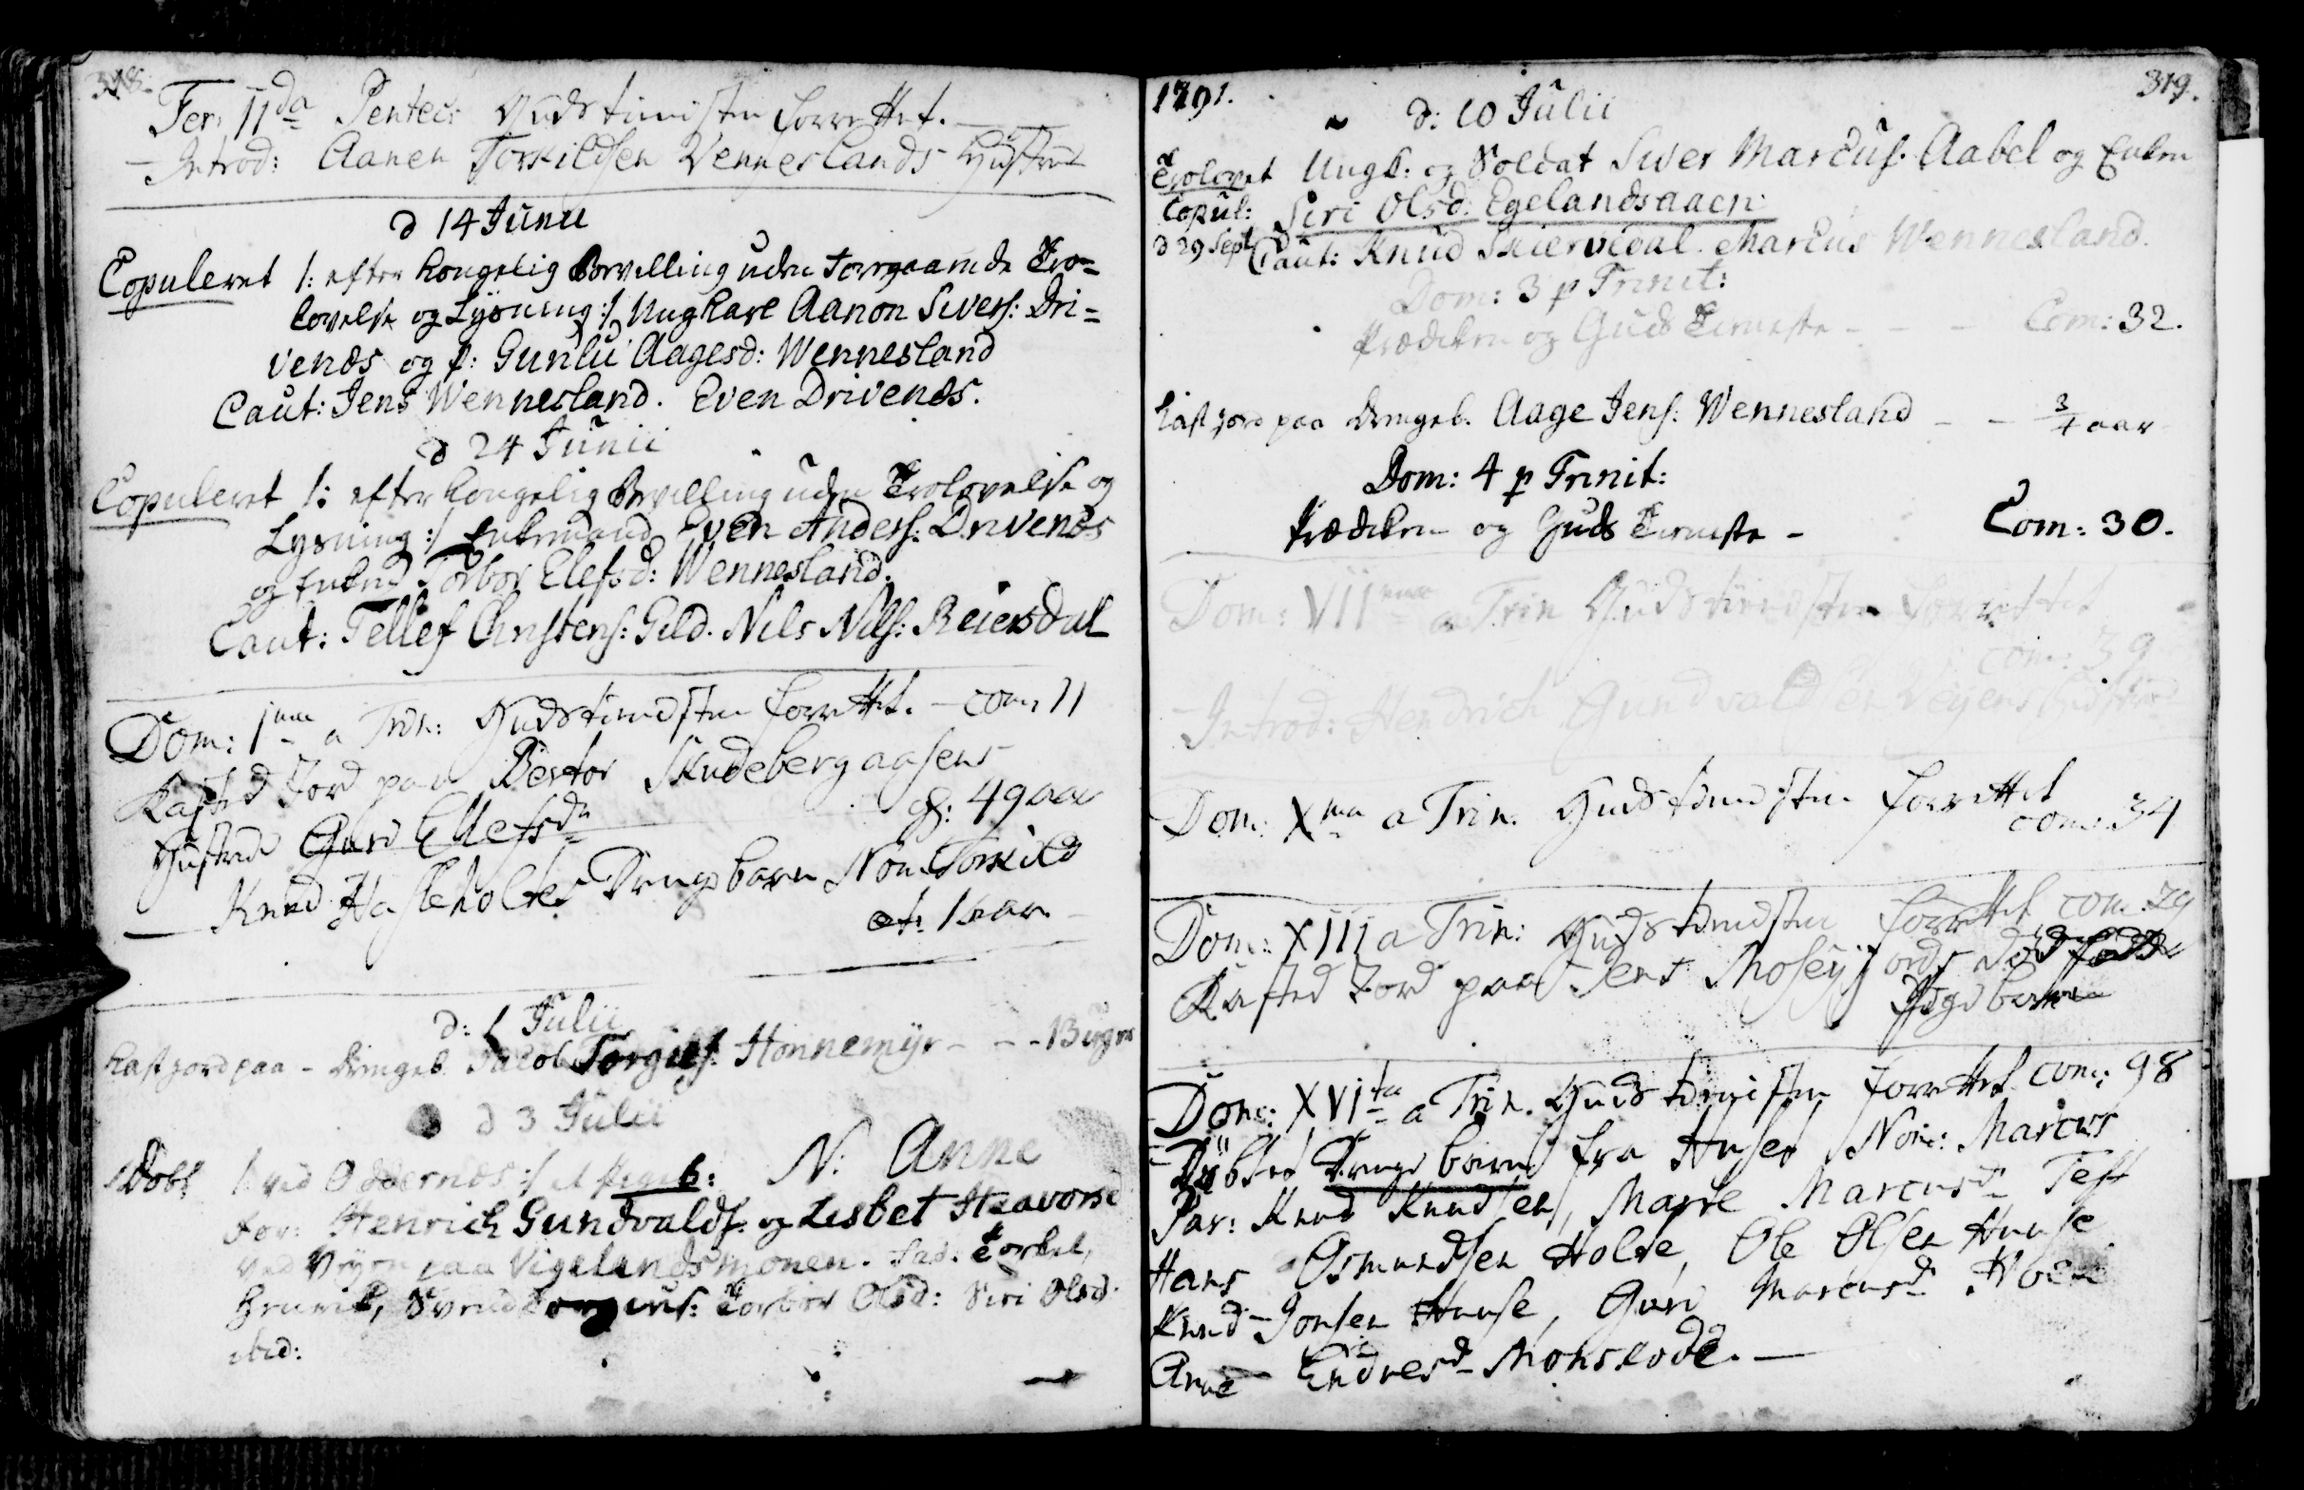 318.
Fer: IIda Pentec: Gudstienisten forrettet.
- Introd: Aanen Torkildsen Wenneslands Hustru
d 14 Junii
Copuleret /: efter kongelig Bevilling uden Foregaaende Tro=
lovelse og Lysning :/ Ungkarl Aanon Sivers: Dri=
venæs og p: Gunlu Aagesd: Wennesland
Caut: Jens Wennesland. Even Drivenæs.
d 24 Junii
Copuleret /: efter kongelig Bevilling uden Trolovelse og
Lysning :/ Enkemand Even Anders: Drivenæs
og Enken Torbor Elefsd: Wennesland.
Caut: Tellef Christens: Gild. Nils Nils: Reiersdal
Dom: 1ma a Trin: Gudstienisten forrettet. - com: 11
Kasted Jord paa Bertor Studebergaasens
Hustrue Guri Ellefsdr gl: 49 aar
- Knud Hasleholtes Drenge barn Nom. Torkild
æt: 1 aar.
d: 1 Julii
Kast jord paa - drengeb. Jacob Torgiuls: Honnemyr - - - 13 uger
d 3 Julii
Döbt /: ved Oddernæs :/ et Pigeb: N: Anne
For: Henrich Gundvalds: og Lisbet Haavorsd
ved Vejen paa Vigelandsmonen. Fad: Torkel,
Torbor Olsd: Siri Olsd:
ibid:
1791. 319.
d: 10 Julii
Trolovet Ungk: og Soldat Siver Marcus: Aabel og Enken
Copul: Siri Olsd: Egelandsaaen
d 29 Sept Caut: Knud Skiervedal. Marcus Wennesland.
Dom: 3 p Trinit:
Prædiken og Guds Tieneste - - - Com: 32.
Kast jord paa drengeb. Aage Jens: Wennesland - - 3/4 aar
Dom: 4 p Trinit:
Prædiken og Guds Tieneste - Com: 30.
Dom: VIIma a Trin Gudstienisten forrettet
com: 39
- Introd: Hendrich Gundvaldsen Veyens Hustrue
Dom: Xma a Trin. Gudstienisten forrettet
com: 34
Dom: XIII a Trin: Gudstienisten forrettet com: 29
Kasted Jord paa Jens Mosejords dödfödte
Pigebarn
Dom: XVIta a Trin. Gudstienisten forrettet com: 98
- Döbted Drenge barn fra Huset Nom: Marcus
Par: Knud Knudsen, Marte Marcusd Test
Hans Osmundsen Holte, Ole Olsen Huuse
Knud Jonsen Huuse, Guri Marcusd
Anne Endresd Monskode. -